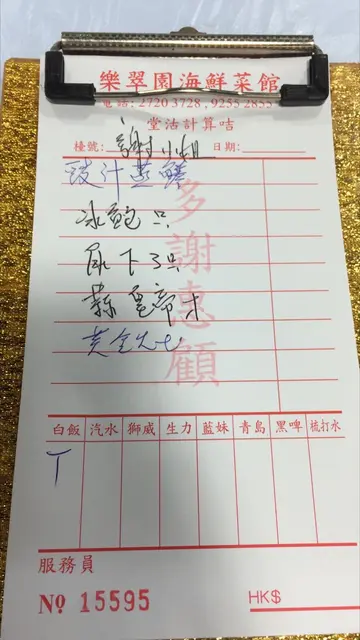 樂翠園海鮮菜館
電話: 2720 3728 , 9255 2855
堂沽計算咭
檯號: 謝小姐 日期:
豉汁蒸鱔
冰鮑 只
尿下3只
多謝惠顧
白飯 汽水 獅威 生力 藍妹 青島 黑啤 梳打水
服務員
Nº 15595 HK$